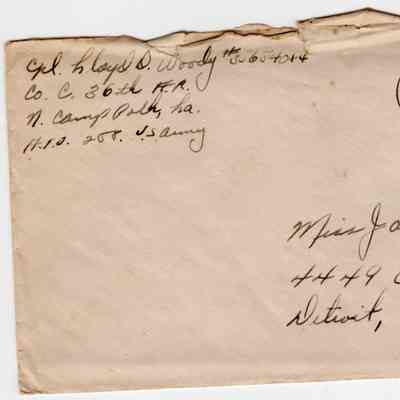 Cpl. Lloyd D. Woody #
Co. C. 36th A.R.
N. Camp Polk, La.
U.S. Army
Miss Ja
4449
Detroit,